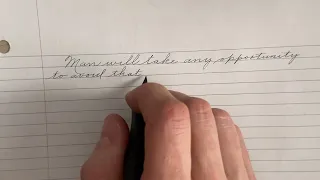 Man will take any opportunity
to avoid that